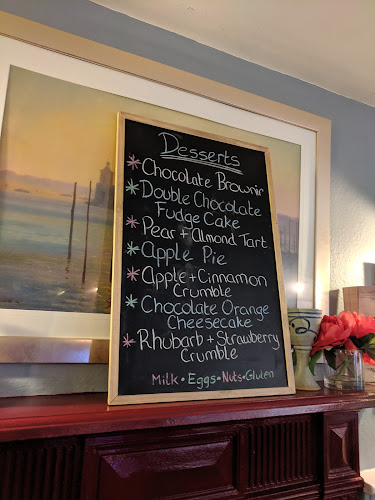 Desserts
* Chocolate Brownie
* Double Chocolate
Fudge Cake
* Pear + Almond Tart
* Apple Pie
* Apple + Cinnamon
Crumble
* Chocolate Orange
Cheesecake
* Rhubarb + Strawberry
Crumble
Milk • Eggs • Nuts • Gluten